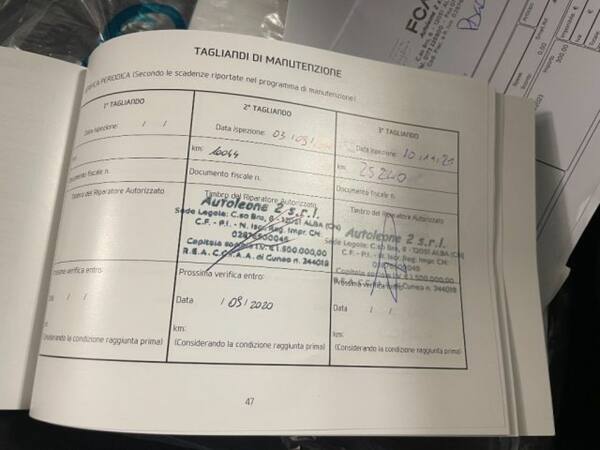 TAGLIANDI DI MANUTENZIONE
PERIODICA (Secondo le scadenze riportate nel programma di manutenzione)
1° TAGLIANDO
Data ispezione: / /
Documento fiscale n.
Timbro del Riparatore Autorizzato
entro:
/ /
(Considerando la condizione raggiunta prima)
2° TAGLIANDO
Data ispezione: 03/09/
km: 10044
Documento fiscale n.
Timbro del Riparatore Autorizzato
Autoleone 2 s.r.l.
Sede Legale: C.so Bra, 6 - 12051 ALBA (CN)
C.F. - P.I. - N. Iscr. Reg. Impr. CN:
Capitale sociale I.V. € 1.500.000,00
R.E.A. C.C.I.A.A. di Cuneo n. 244019
Prossima verifica entro:
Data / 09/ 2020
km:
(Considerando la condizione raggiunta prima)
3° TAGLIANDO
Data ispezione: 10/11/21
km: 25240
Documento fiscale n.
Timbro del Riparatore Autorizzato
Autoleone 2 s.r.l.
Sede Legale: C.so Bra, 6 - 12051 ALBA (CN)
C.F. - P.I. - N. Iscr. Reg. Impr. CN:
Capitale sociale I.V. € 1.500.000,00
Cuneo n. 244019
Prossima verifica entro:
Data / /
km:
(Considerando la condizione raggiunta prima)
47